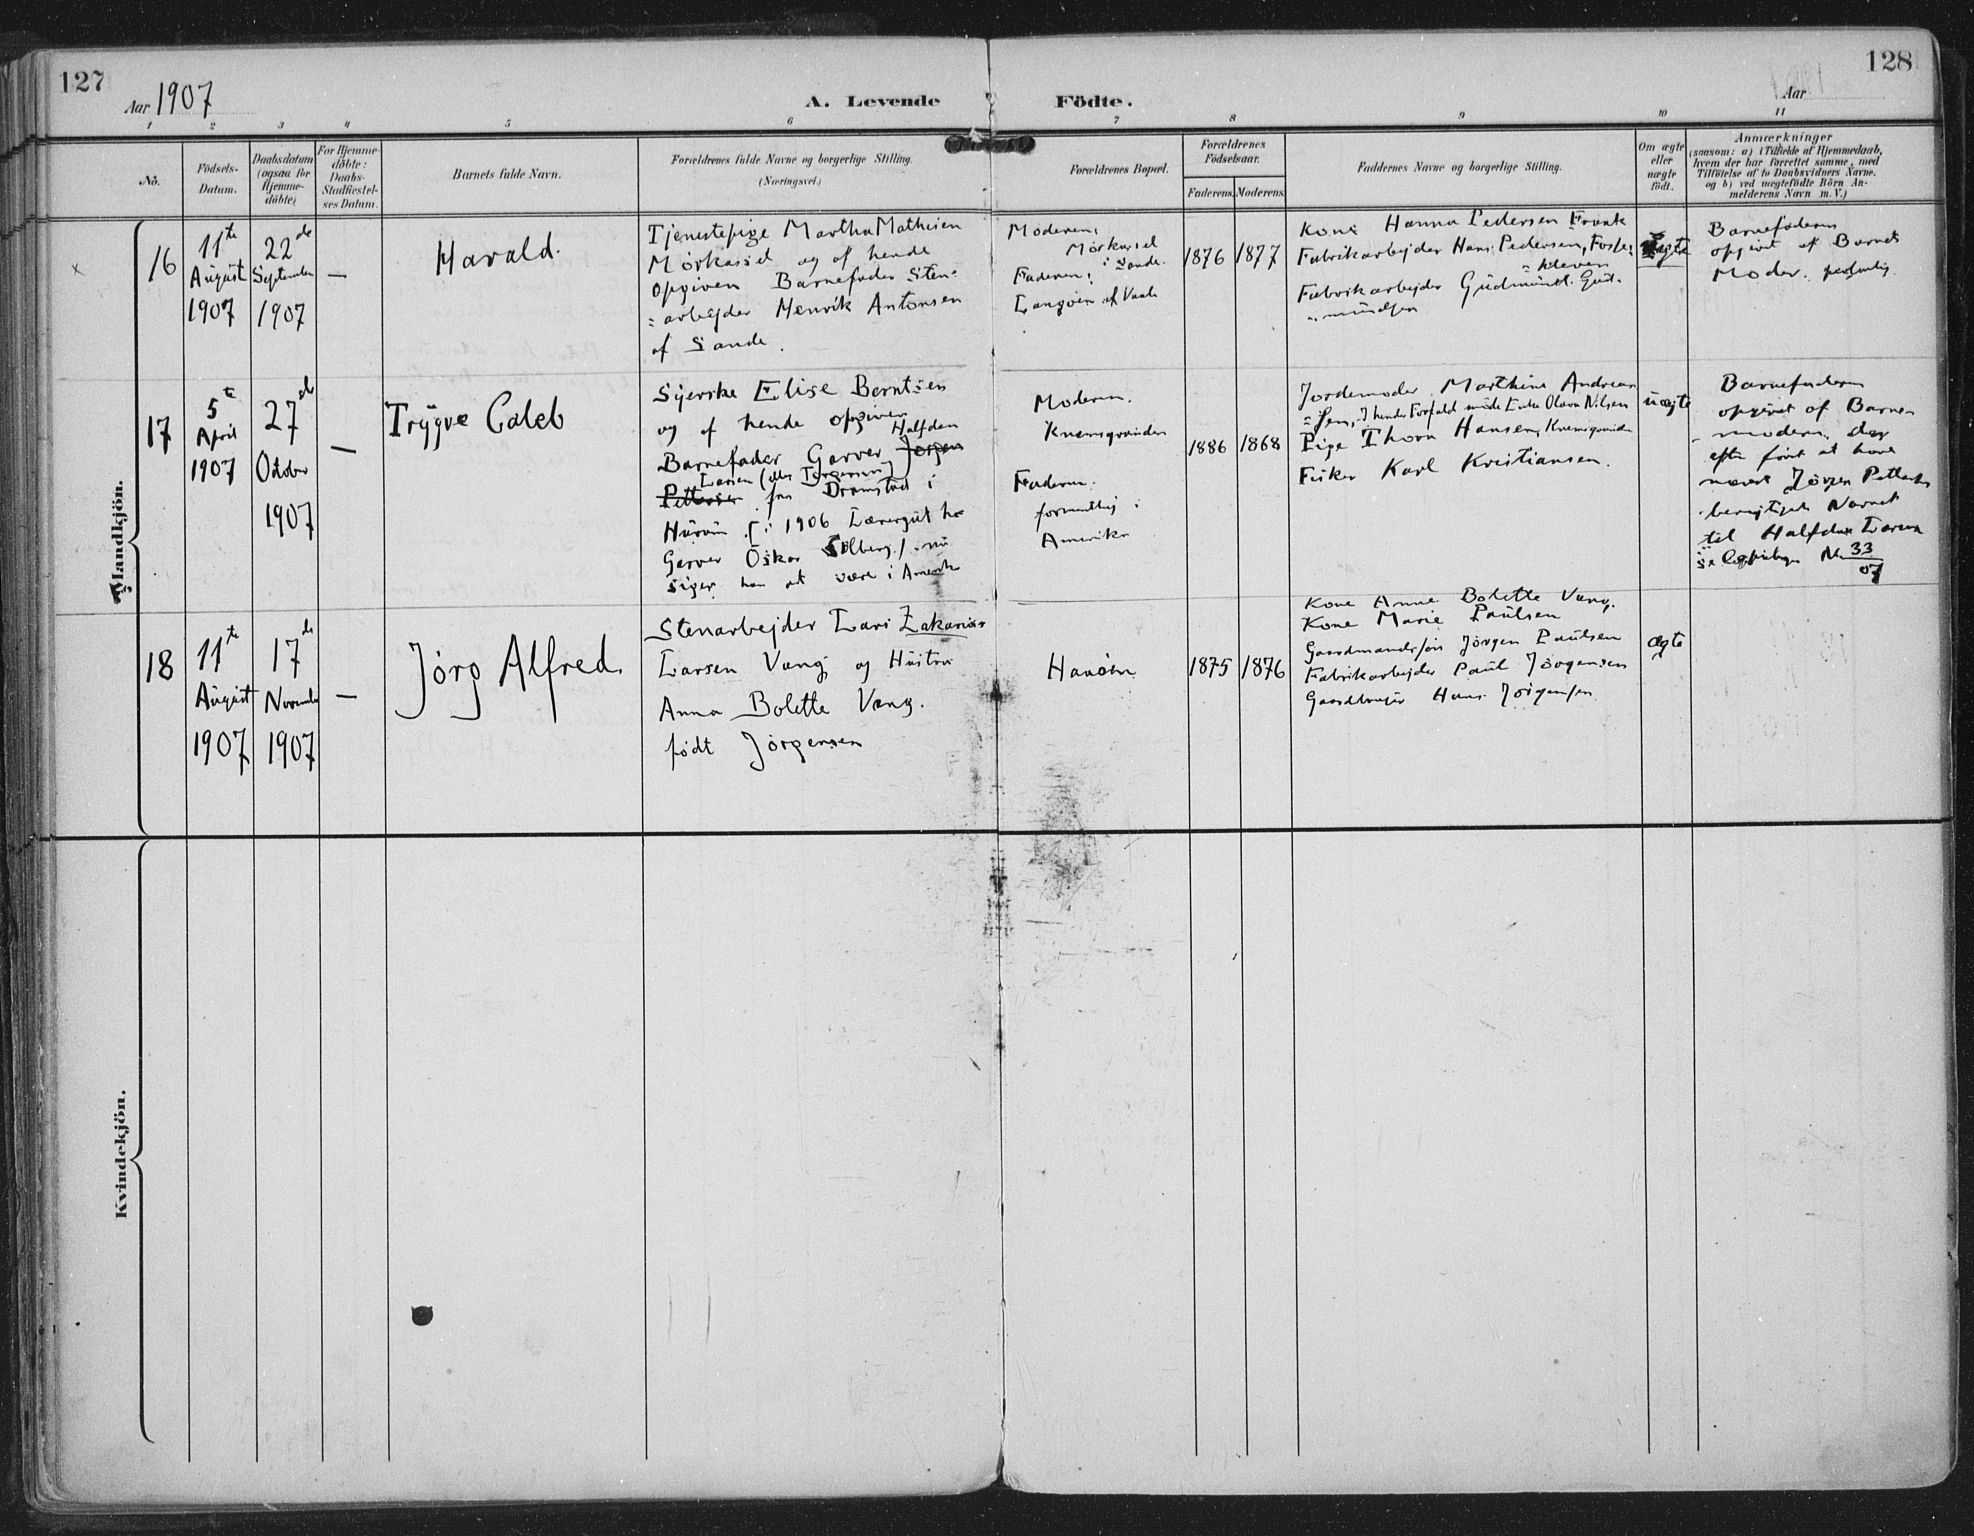 127
128
Aar 1907
A. Levende Födte.
Aar
1 2 3 4 5 6 7 8 9 10 11
No.
Födsels-
Datum.
Daabsdatum
(ogsaa for
Hjemme-
döbte)
For Hjemme-
döbte:
Daabs-
Stadfæstel-
ses Datum.
Barnets fulde Navn.
Forældrenes fulde Navne og borgerlige Stilling.
(Næringsvei.)
Forældrenes Bopæl.
Forældrenes
Födselsaar.
Faderens.
Moderens.
Faddernes Navne og borgerlige Stilling.
Om ægte
eller
uægte
födt.
Anmærkninger
(saasom: a) i Tilfælde af Hjemmedaab,
hvem der har forrettet samme, med
Tilföielse af to Daabsvidners Navne,
og b) ved uægtefödte Börn An-
melderens Navn m. V.)
Mandkjön.
16
11te
August
1907
22de
September
1907
—
Harald.
Tjenestepige Martha Mathisen
Mörkassel og af hende
opgiven Barnefader Sten-
=arbejder Henrik Antonsen
af Sande.
Moderen:
Mörkassel
i Sande.
Faderen:
Langöien af Vaale
1876
1877
Kone Hanna Pedersen
Fabrikarbejder Hans Pedersen,
=kleven
Fabrikarbejder Gudmund. Gud-
=mundsen
Barnefaderen
opgivet af Barnets
Moder.
17
5te
April
1907
27de
Octobr
1907
—
Trygve Caleb
Syerske Elise Berntsen
og af hende opgiven
Halfdan
Barnefader Garver Jörgen
Larsen (eller Jörgensen)
Pettersen fra Dramstad i
Hurum [i 1906 Læregut hos
Garver Oskar Solberg/. nu
siger han at være i Amerika
Moderen.
Knemsgrunden
Faderen.
formentlig i
Amerika
1886
1868
Jordemoder Marthine Andrea
=sen, I hendes Forfald mödte Enke Olava Nilsen
Pige Thora Hansen, Knemsgrunden
Fisker Karl Kristiansen.
uægte
Barnefaderen
opgivet af Barne-
=moderen, der
efter först at have
nævnt Jörgen Petters
berigtiget Navnet
til Halfdan Larsen
se Copiebogen No 33/07
18
11te
August
1907
17de
November
1907
—
Jörg Alfred.
Stenarbejder Lars Zakarias
Larsen Vang og Hustru
Anna Bolette Vang.
födt Jörgensen
Havöen
1875
1876
Kone Anne Bolette Vang.
Kone Marie Paulsen
Gaardmandssön Jörgen Paulsen
Fabrikarbejder Paul Jörgensen
Gaardbruger Hans Jörgensen
ægte
Kvindekjön.